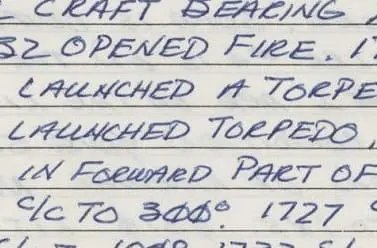 CRAFT BEARING
32 OPENED FIRE. 17
LAUNCHED A TORPE
LAUNCHED TORPEDO
IN FORWARD PART OF
C/C TO 300°. 1727
1727